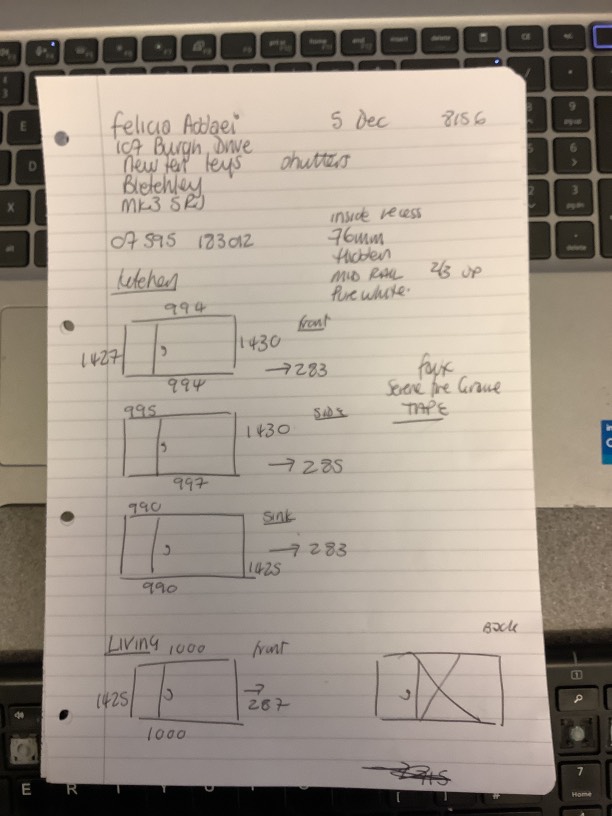 Felicia Addaei 5 Dec 8156
107 Burgh Drive
Newton Leys shutters
Bletchley
MK3 5RJ
07595 183012
inside recess
76mm
Hidden
MID RAIL 2/3 UP
Pure white.
Kitchen
994
front
1427
1430
→283
994
faux
TAPE
995
SIDE
1430
→ 285
997
990
Sink
→ 283
1425
990
Back
Living 1000 front
1425
→
287
1000